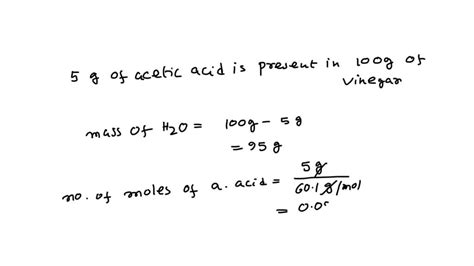 5 g of acetic acid is present in 100g of
vinegar
mass of H2O = 100g - 5 g
= 95 g
no. of moles of a. acid = 5g / 60.1 g/mol
= 0.0